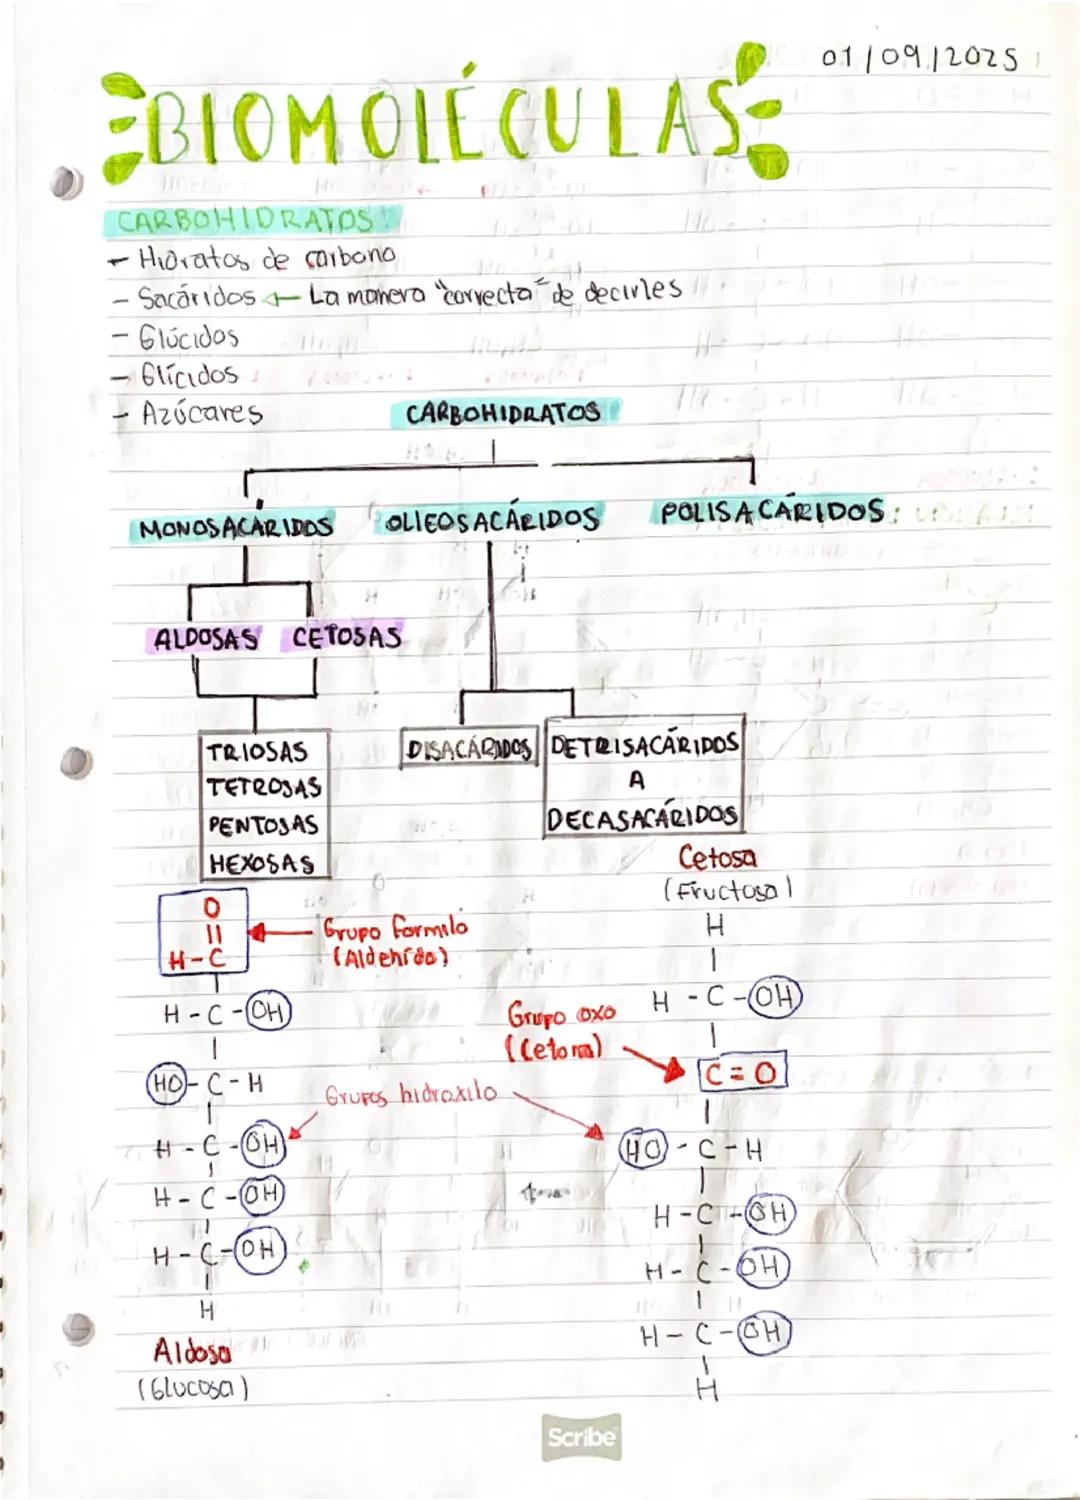 01/09/2025
BIOMOLÉCULAS
CARBOHIDRATOS:
- Hidratos de carbono
- Sacáridos ← La manera "correcta" de decirles
- Glúcidos
- Glícidos
- Azúcares
CARBOHIDRATOS
MONOSACÁRIDOS OLIGOSACÁRIDOS POLISACÁRIDOS
ALDOSAS CETOSAS
TRIOSAS
TETROSAS
PENTOSAS
HEXOSAS
DISACÁRIDOS
DETRISACÁRIDOS
A
DECASACÁRIDOS
O
||
H-C
Grupo formilo
(Aldehído)
H-C-OH
HO-C-H
H-C-OH
H-C-OH
H-C-OH
H
Aldosa
(Glucosa)
Grupos hidroxilo
Cetosa
(Fructosa)
H
H-C-OH
Grupo oxo
(Cetona)
C=O
HO-C-H
H-C-OH
H-C-OH
H-C-OH
H
Scribe